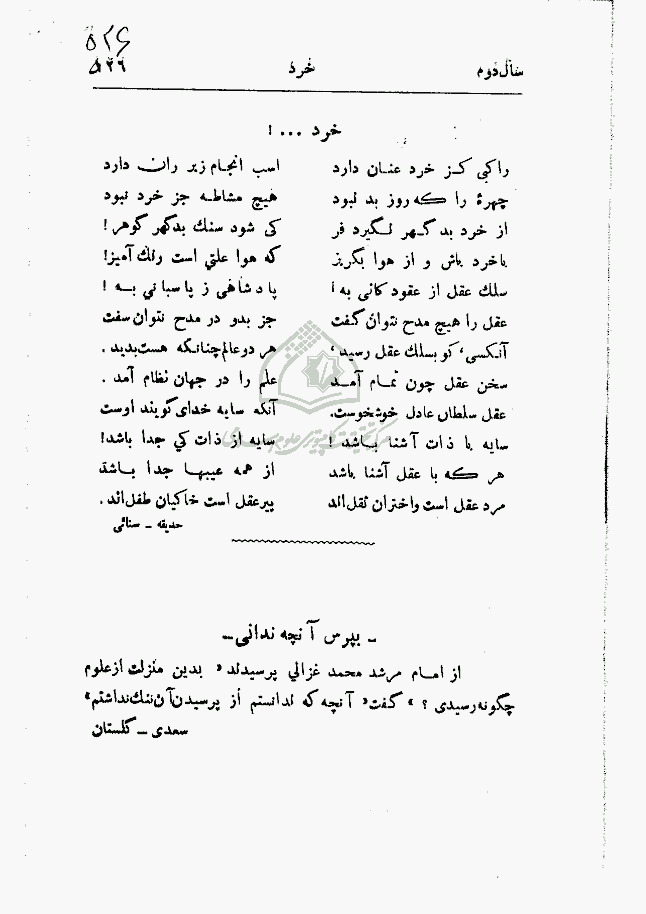 ۵۲۶
سال دوم خرد ۵۲۶
خرد ... !
راکبی کـز خرد عنـان دارد اسب انجـام زیر ران دارد
چهرهٔ را کـه روز بد نبود هیچ مشاطـه جز خرد نبود
از خرد بد گـهر نگیرد فر کی شود سنك بدگهر گوهر !
باخرد باش و از هوا بگریز که هوا علتی است رنك آمیز!
سلك عقل از عقود کانی به ! پادشاهی ز پاسبانی بـه !
عقل را هیچ مدح نتوان گفت جز بدو در مدح نتوان سفت
آنکسی، کو بسلك عقل رسید، هر دو عالم چنانکه هست بدید .
سخن عقل چون تمـام آمـد علم را در جهان نظام آمد .
عقل سلطان عادل خوشخوست، آنکه سایه خدای گویند اوست
سایه با ذات آشنا بـاشد ! سایه از ذات کی جدا باشد!
هر کـه با عقل آشنا باشد از همه عیبهـا جدا بـاشد
مرد عقل است و اختران ثقل‌اند پیر عقل است خاکیان طفل‌اند .
حدیقه ـ سنائی
ـ بپرس آنچه ندانی ـ
از امـام مرشد محمد غزالی پرسیدند « بدین منزلت از علوم
چگونه رسیدی ؟ » گفت « آنچه که ندانستم از پرسیدن آن ننك نداشتم »
سعدی ـ گلستان